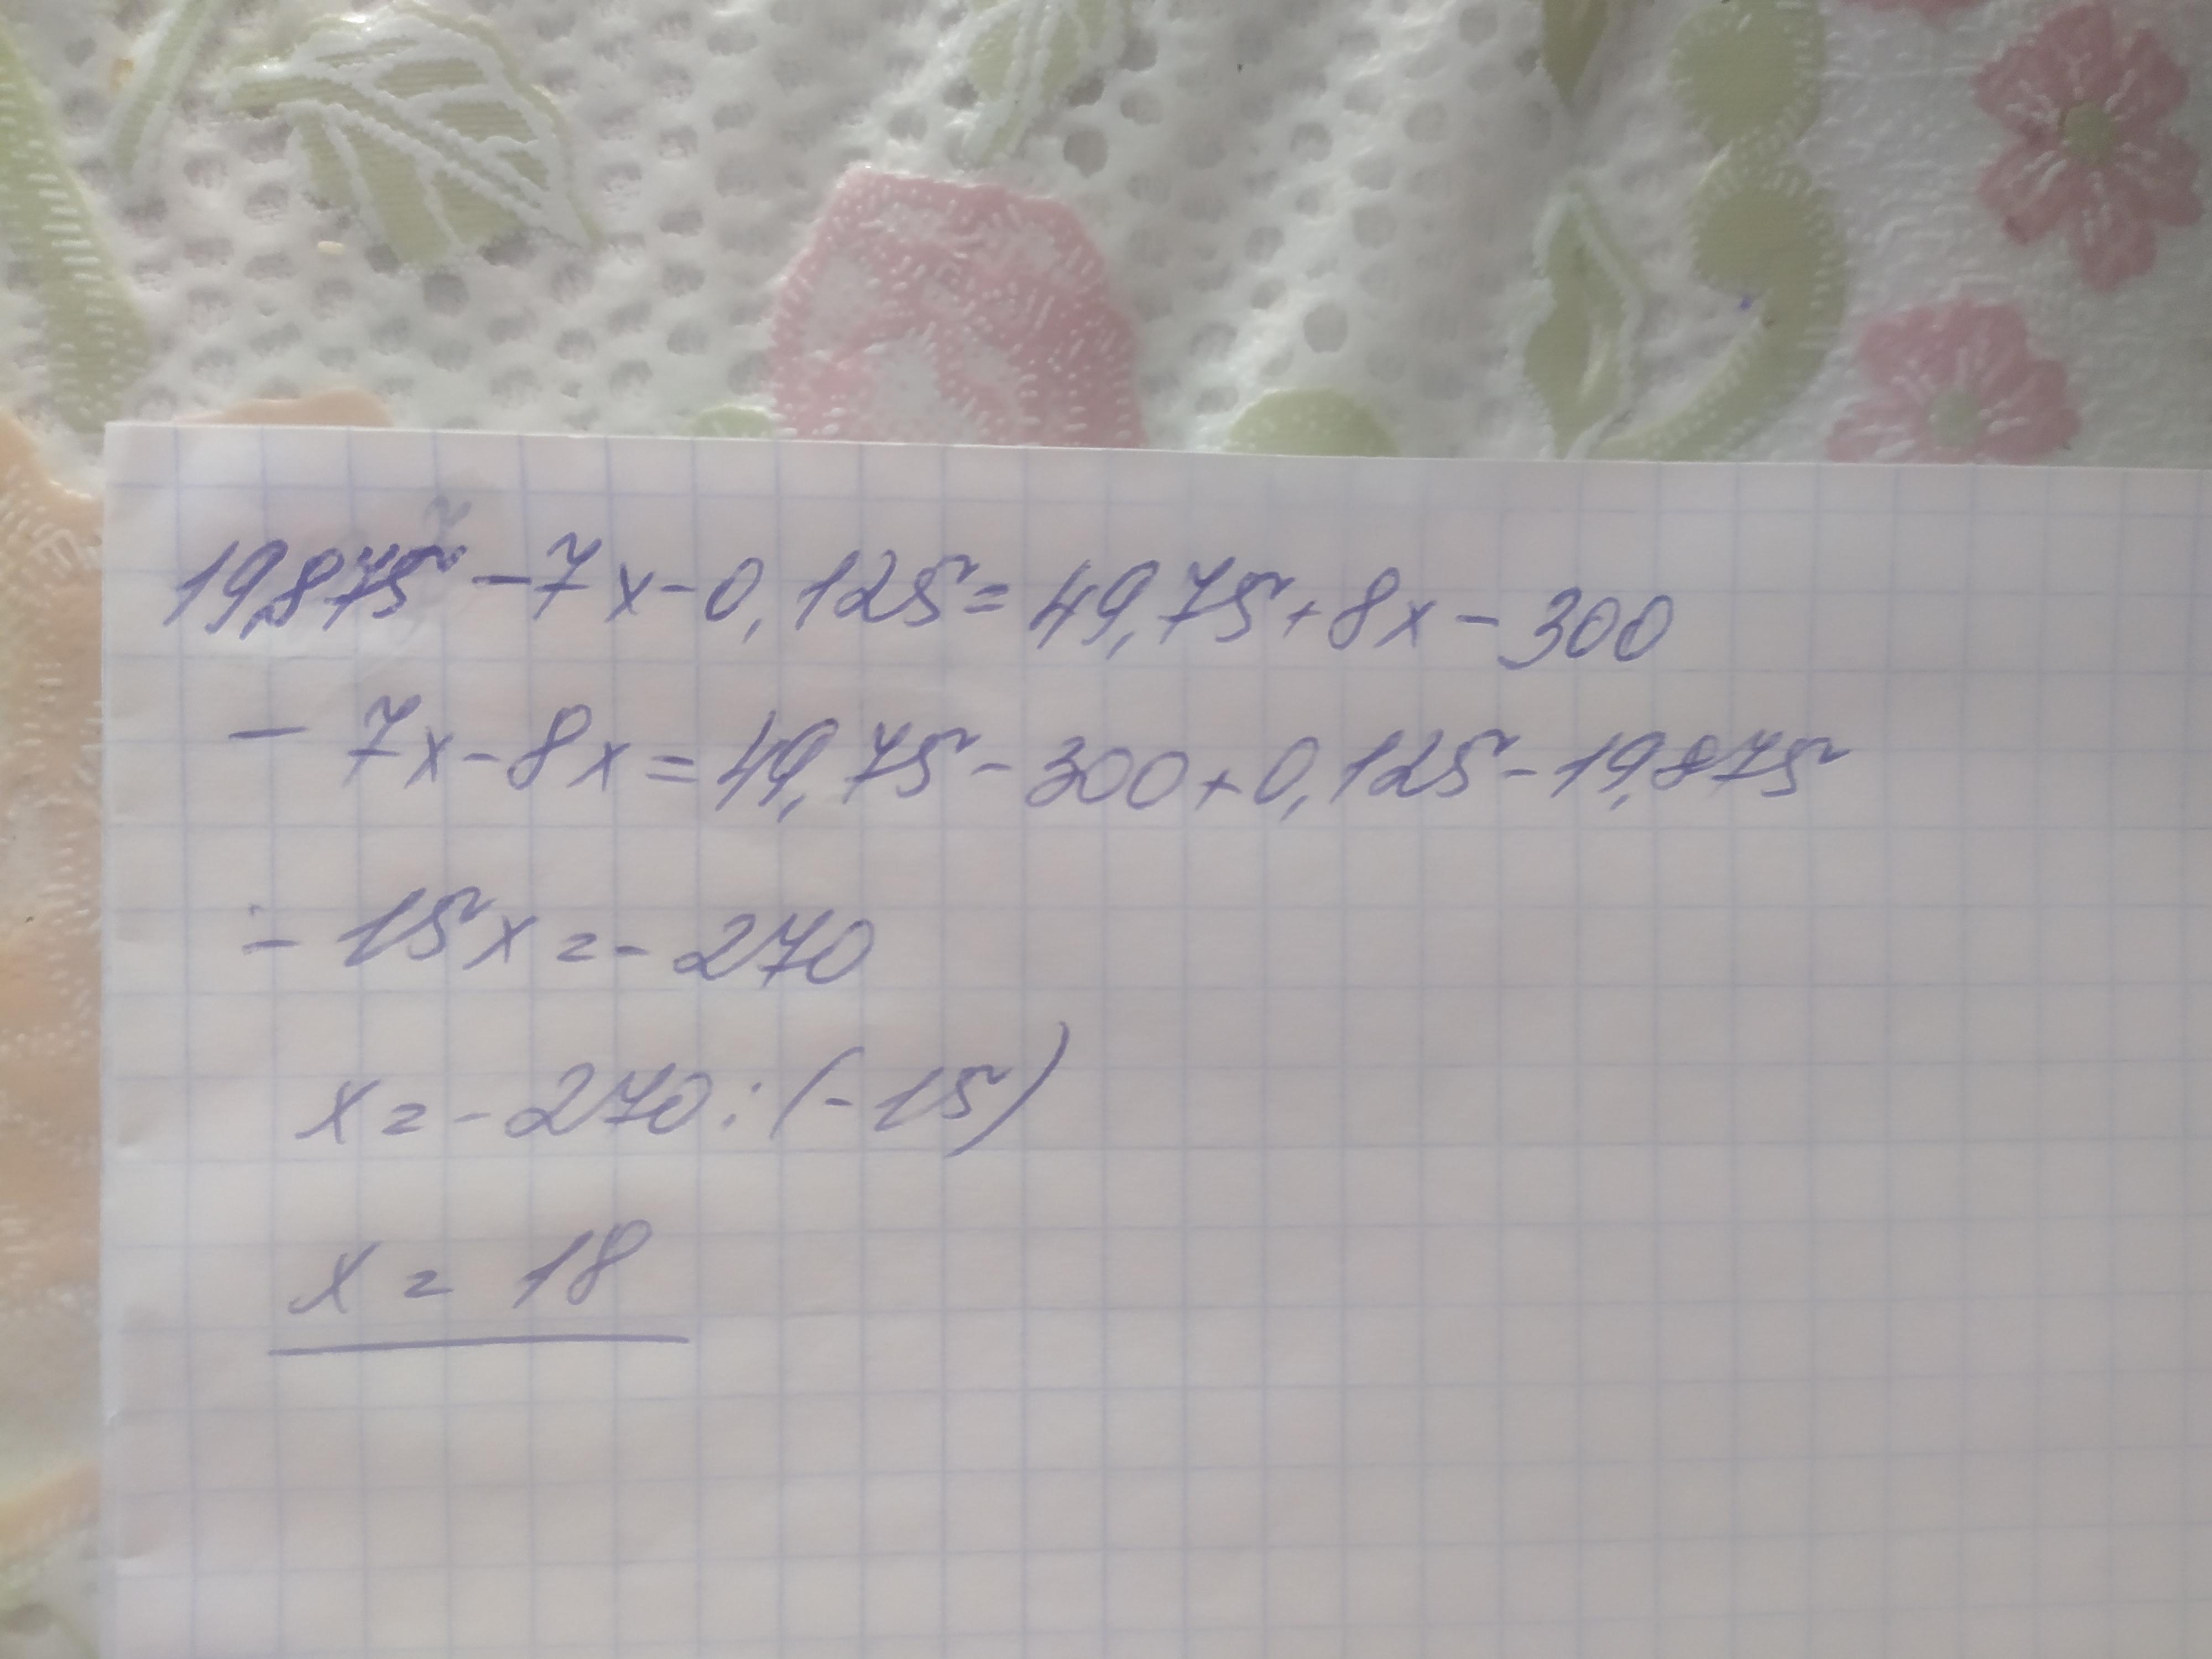 19,875 - 7x - 0,125 = 49,75 + 8x - 300
- 7x - 8x = 49,75 - 300 + 0,125 - 19,875
- 15x = - 270
x = - 270 : (- 15)
x = 18